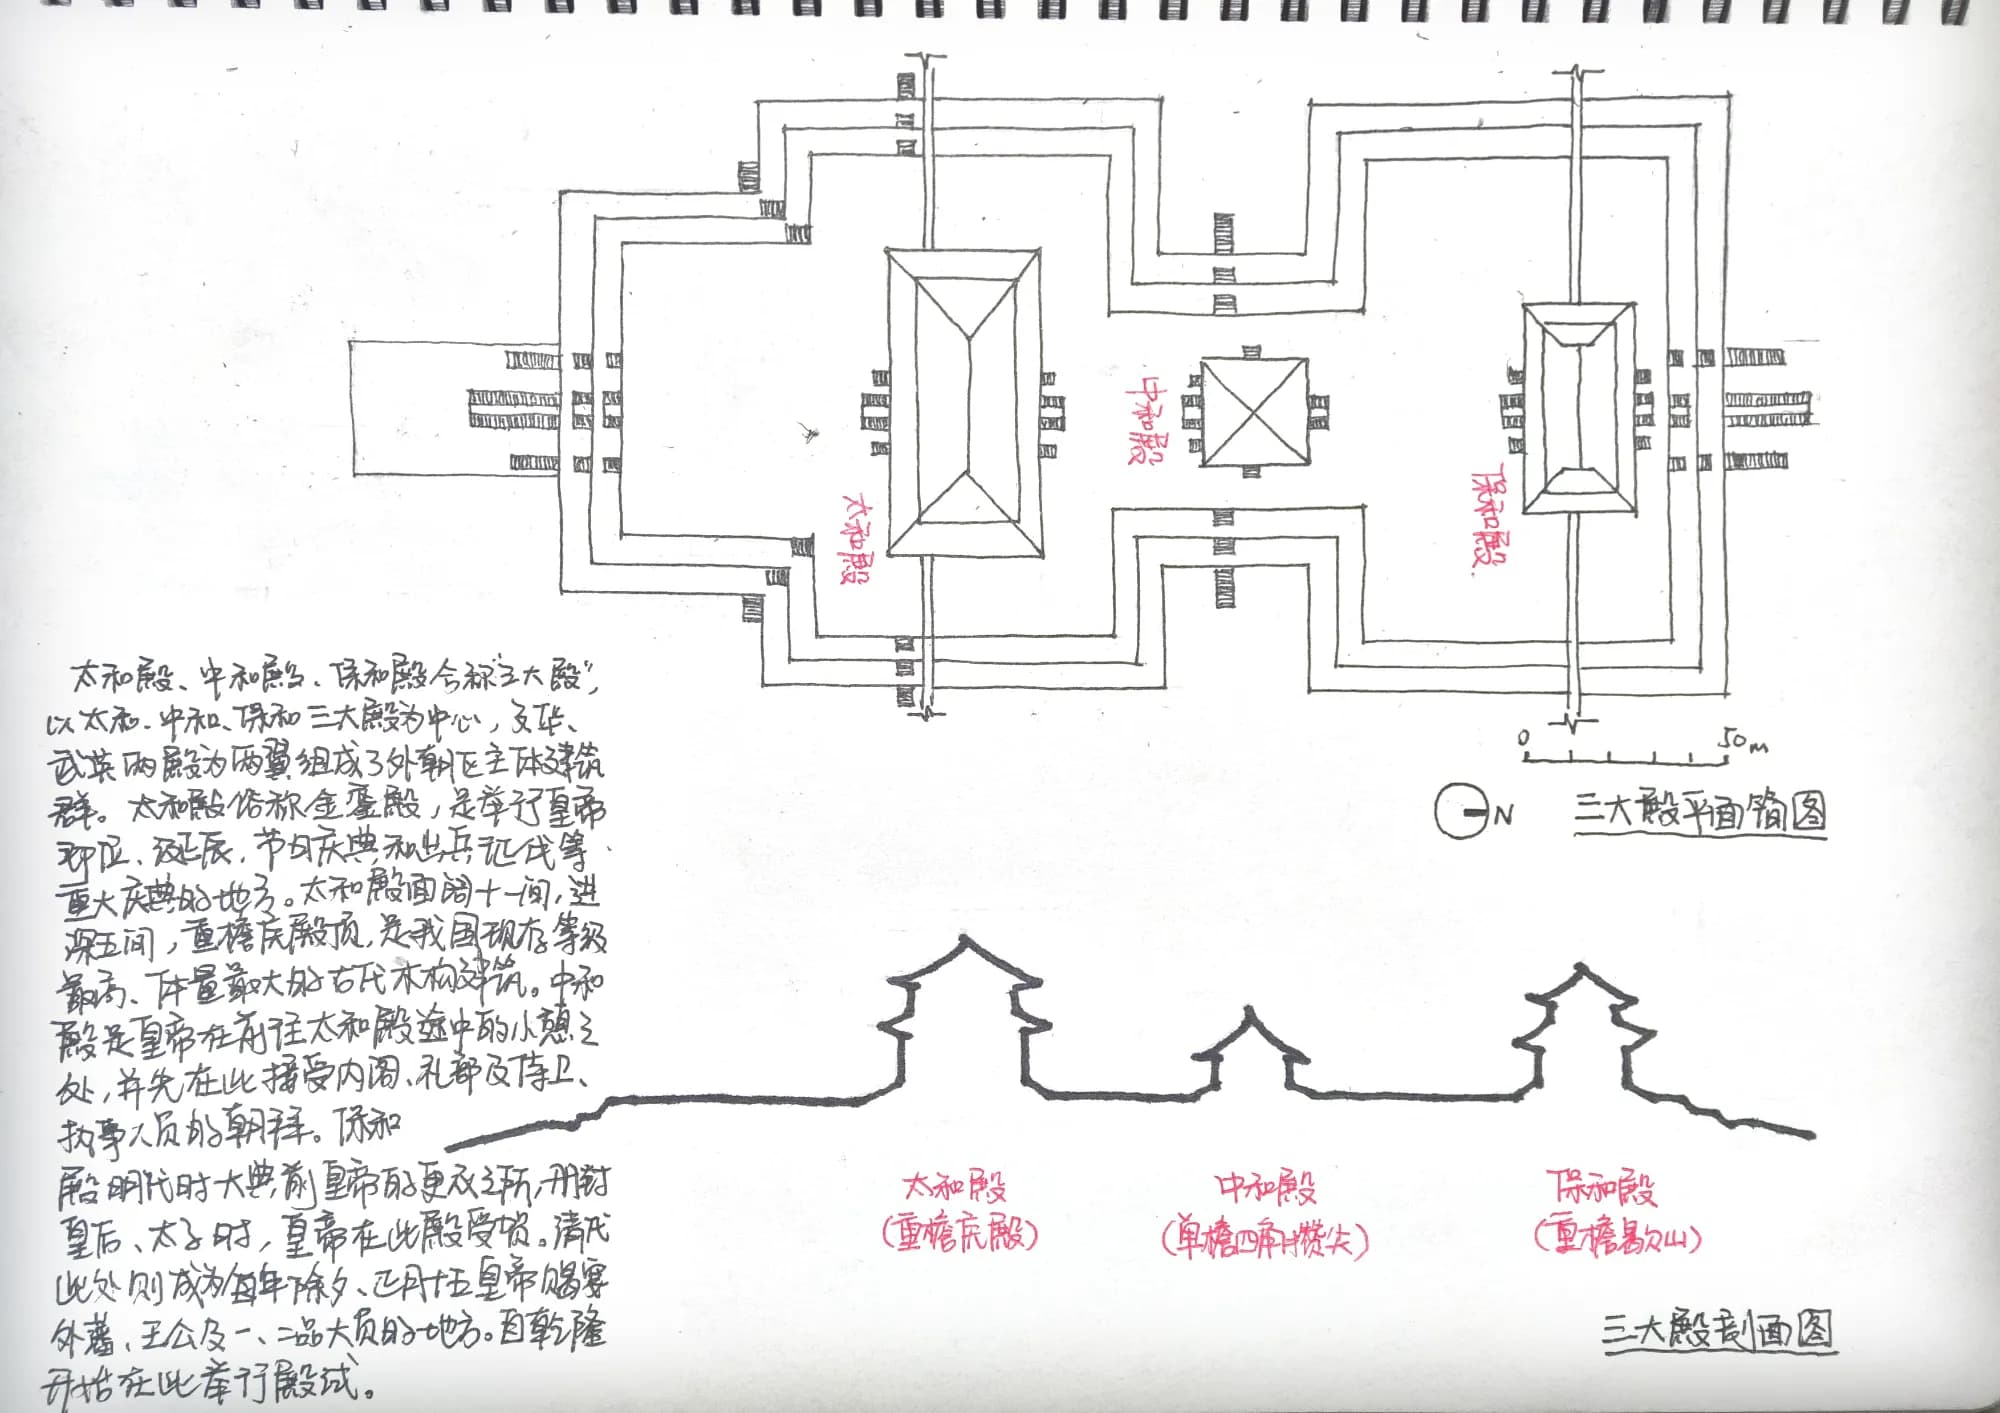 中和殿
太和殿
保和殿
0 50m
N
三大殿平面简图
太和殿、中和殿、保和殿合称"三大殿",
以太和、中和、保和三大殿为中心，文华、
武英两殿为两翼组成了外朝区主体建筑
群。太和殿俗称金銮殿，是举行皇帝
即位、诞辰、节日庆典和出兵征伐等
重大庆典的地方。太和殿面阔十一间，进
深五间，重檐庑殿顶，是我国现存等级
最高、体量最大的古代木构建筑。中和
殿是皇帝在前往太和殿途中的小憩之
处，并先在此接受内阁、礼部及侍卫、
执事人员的朝拜。保和
殿明代时大典前皇帝的更衣之所，册封
皇后、太子时，皇帝在此殿受贺。清代
此处则成为每年除夕、正月十五皇帝赐宴
外藩、王公及一、二品大员的地方。自乾隆
开始在此举行殿试。
太和殿
(重檐庑殿)
中和殿
(单檐四角攒尖)
保和殿
(重檐歇山)
三大殿剖面图